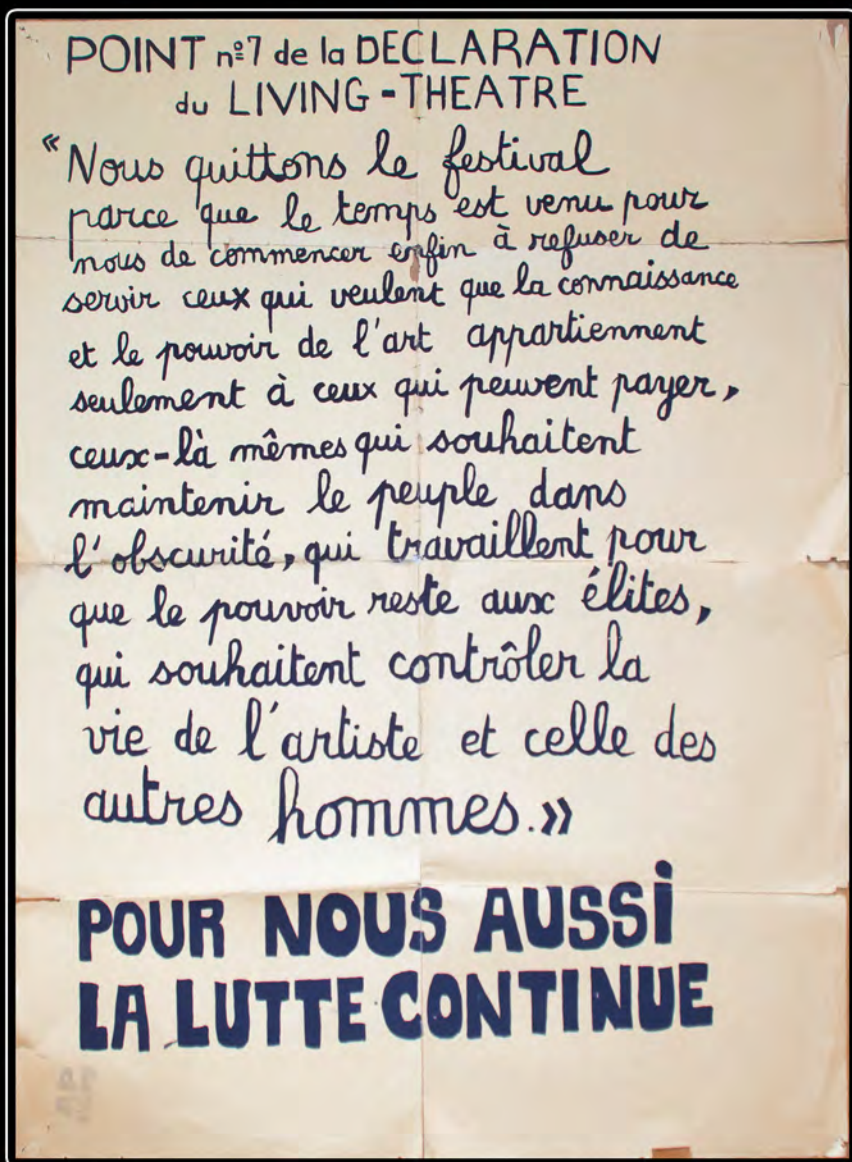 POINT nº7 de la DECLARATION
du LIVING-THEATRE
"Nous quittons le festival
parce que le temps est venu pour
nous de commencer enfin à refuser de
servir ceux qui veulent que la connaissance
et le pouvoir de l'art appartiennent
seulement à ceux qui peuvent payer,
ceux-là mêmes qui souhaitent
maintenir le peuple dans
l'obscurité, qui travaillent pour
que le pouvoir reste aux élites,
qui souhaitent contrôler la
vie de l'artiste et celle des
autres hommes.»
POUR NOUS AUSSi
LA LUTTE CONTINUE